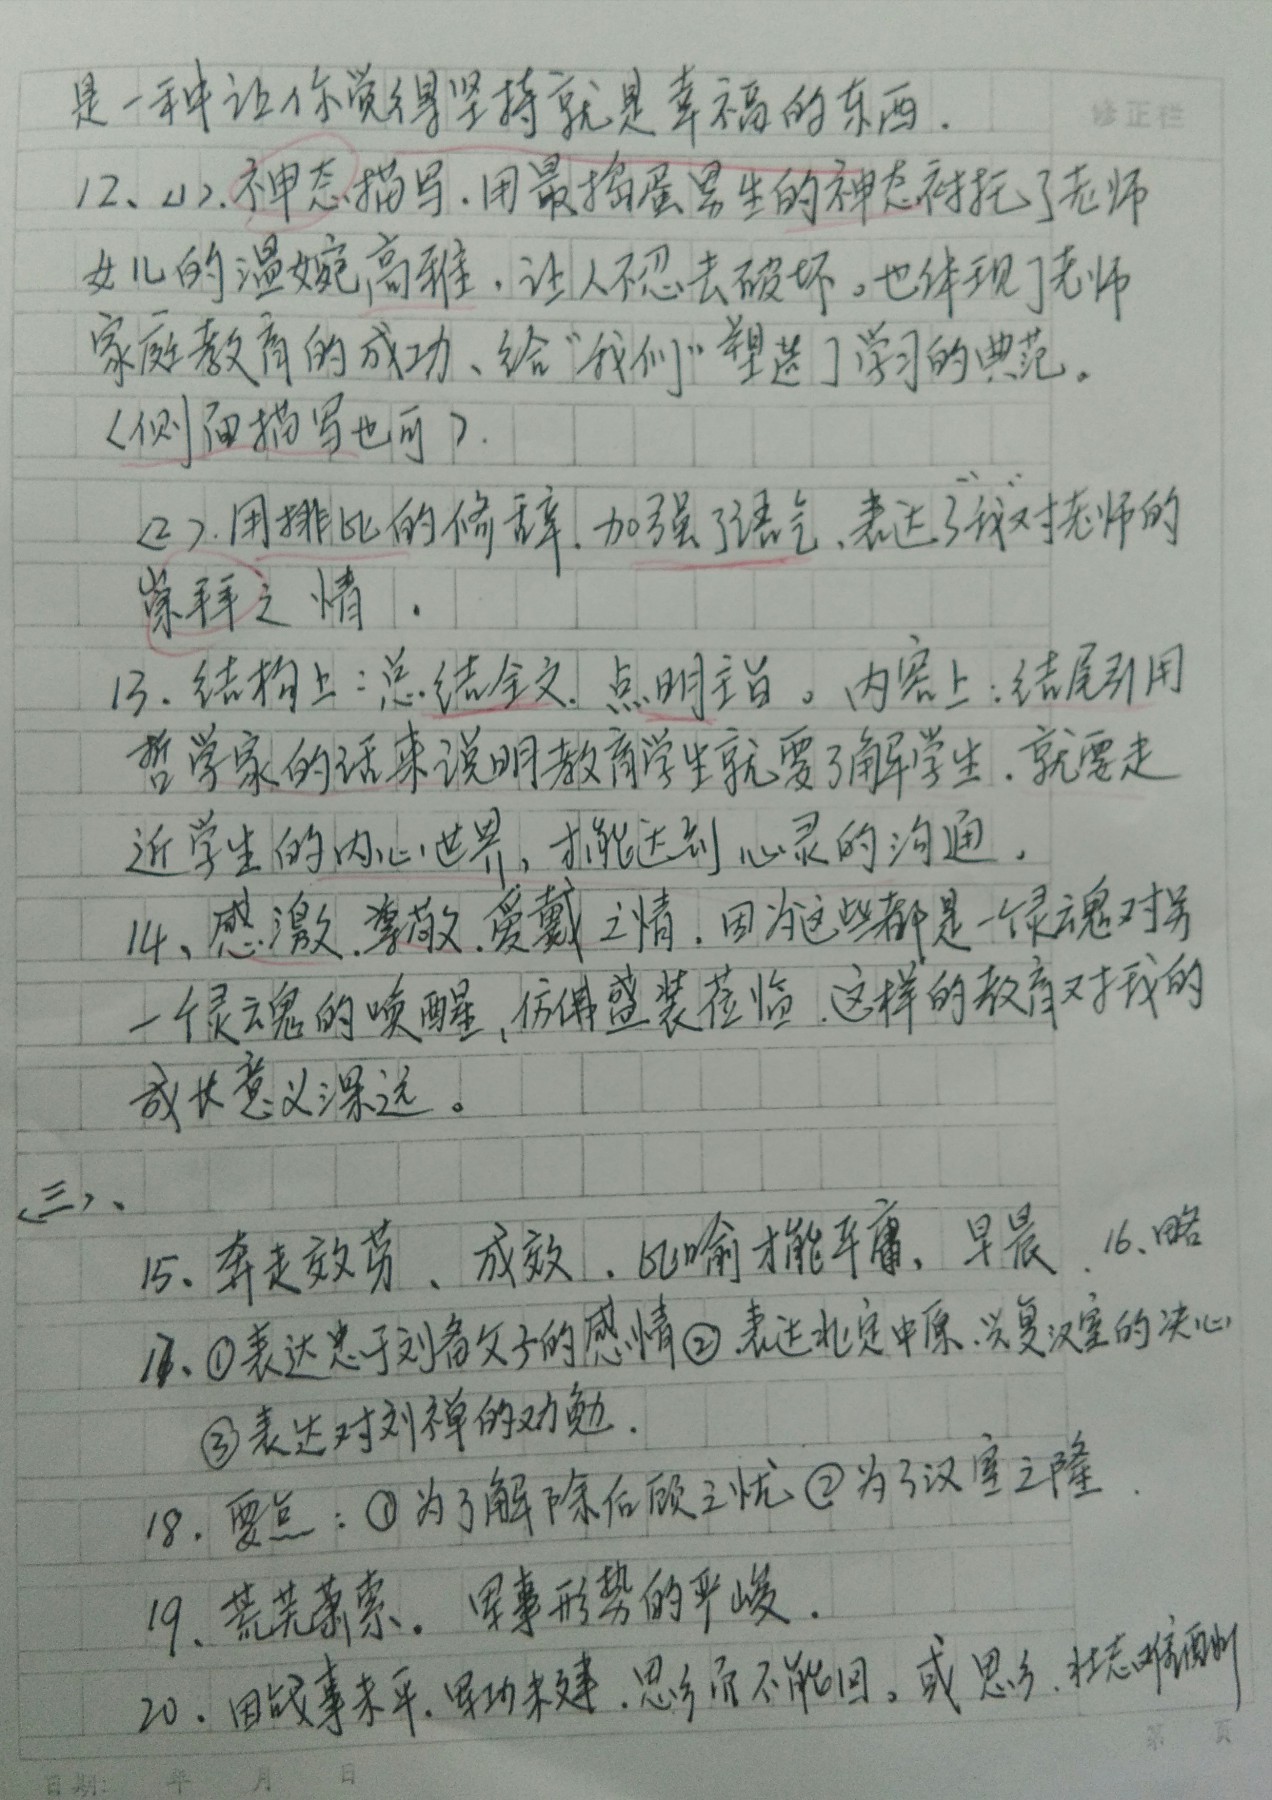 是一种让你觉得坚持就是幸福的东西.
修正栏
12、(1).神态描写.用最捣蛋男生的神态衬托了老师
女儿的温婉高雅.让人不忍去破坏。也体现了老师
家庭教育的成功、给"我们"塑造了学习的典范。
(侧面描写也可).
(2).用排比的修辞.加强了语气、表达了"我"对老师的
崇拜之情.
13.结构上:总结全文.点明主旨。内容上:结尾引用
哲学家的话来说明教育学生就要了解学生.就要走
近学生的内心世界,才能达到心灵的沟通.
14、感激.尊敬.爱戴之情.因为这些都是一个灵魂对另
一个灵魂的唤醒,仿佛盛装莅临.这样的教育对我的
成长意义深远。
(三)、
15、奔走效劳、成效.比喻才能平庸、早晨.16、略
17、①表达忠于刘备父子的感情②表达北定中原.兴复汉室的决心
③表达对刘禅的劝勉.
18.要点:①为了解除后顾之忧②为了汉室之隆.
19、荒芜萧索.军事形势的严峻.
20.因战事未平.军功未建.思乡而不能回。或思乡.壮志难酬
第 页
日期: 年 月 日